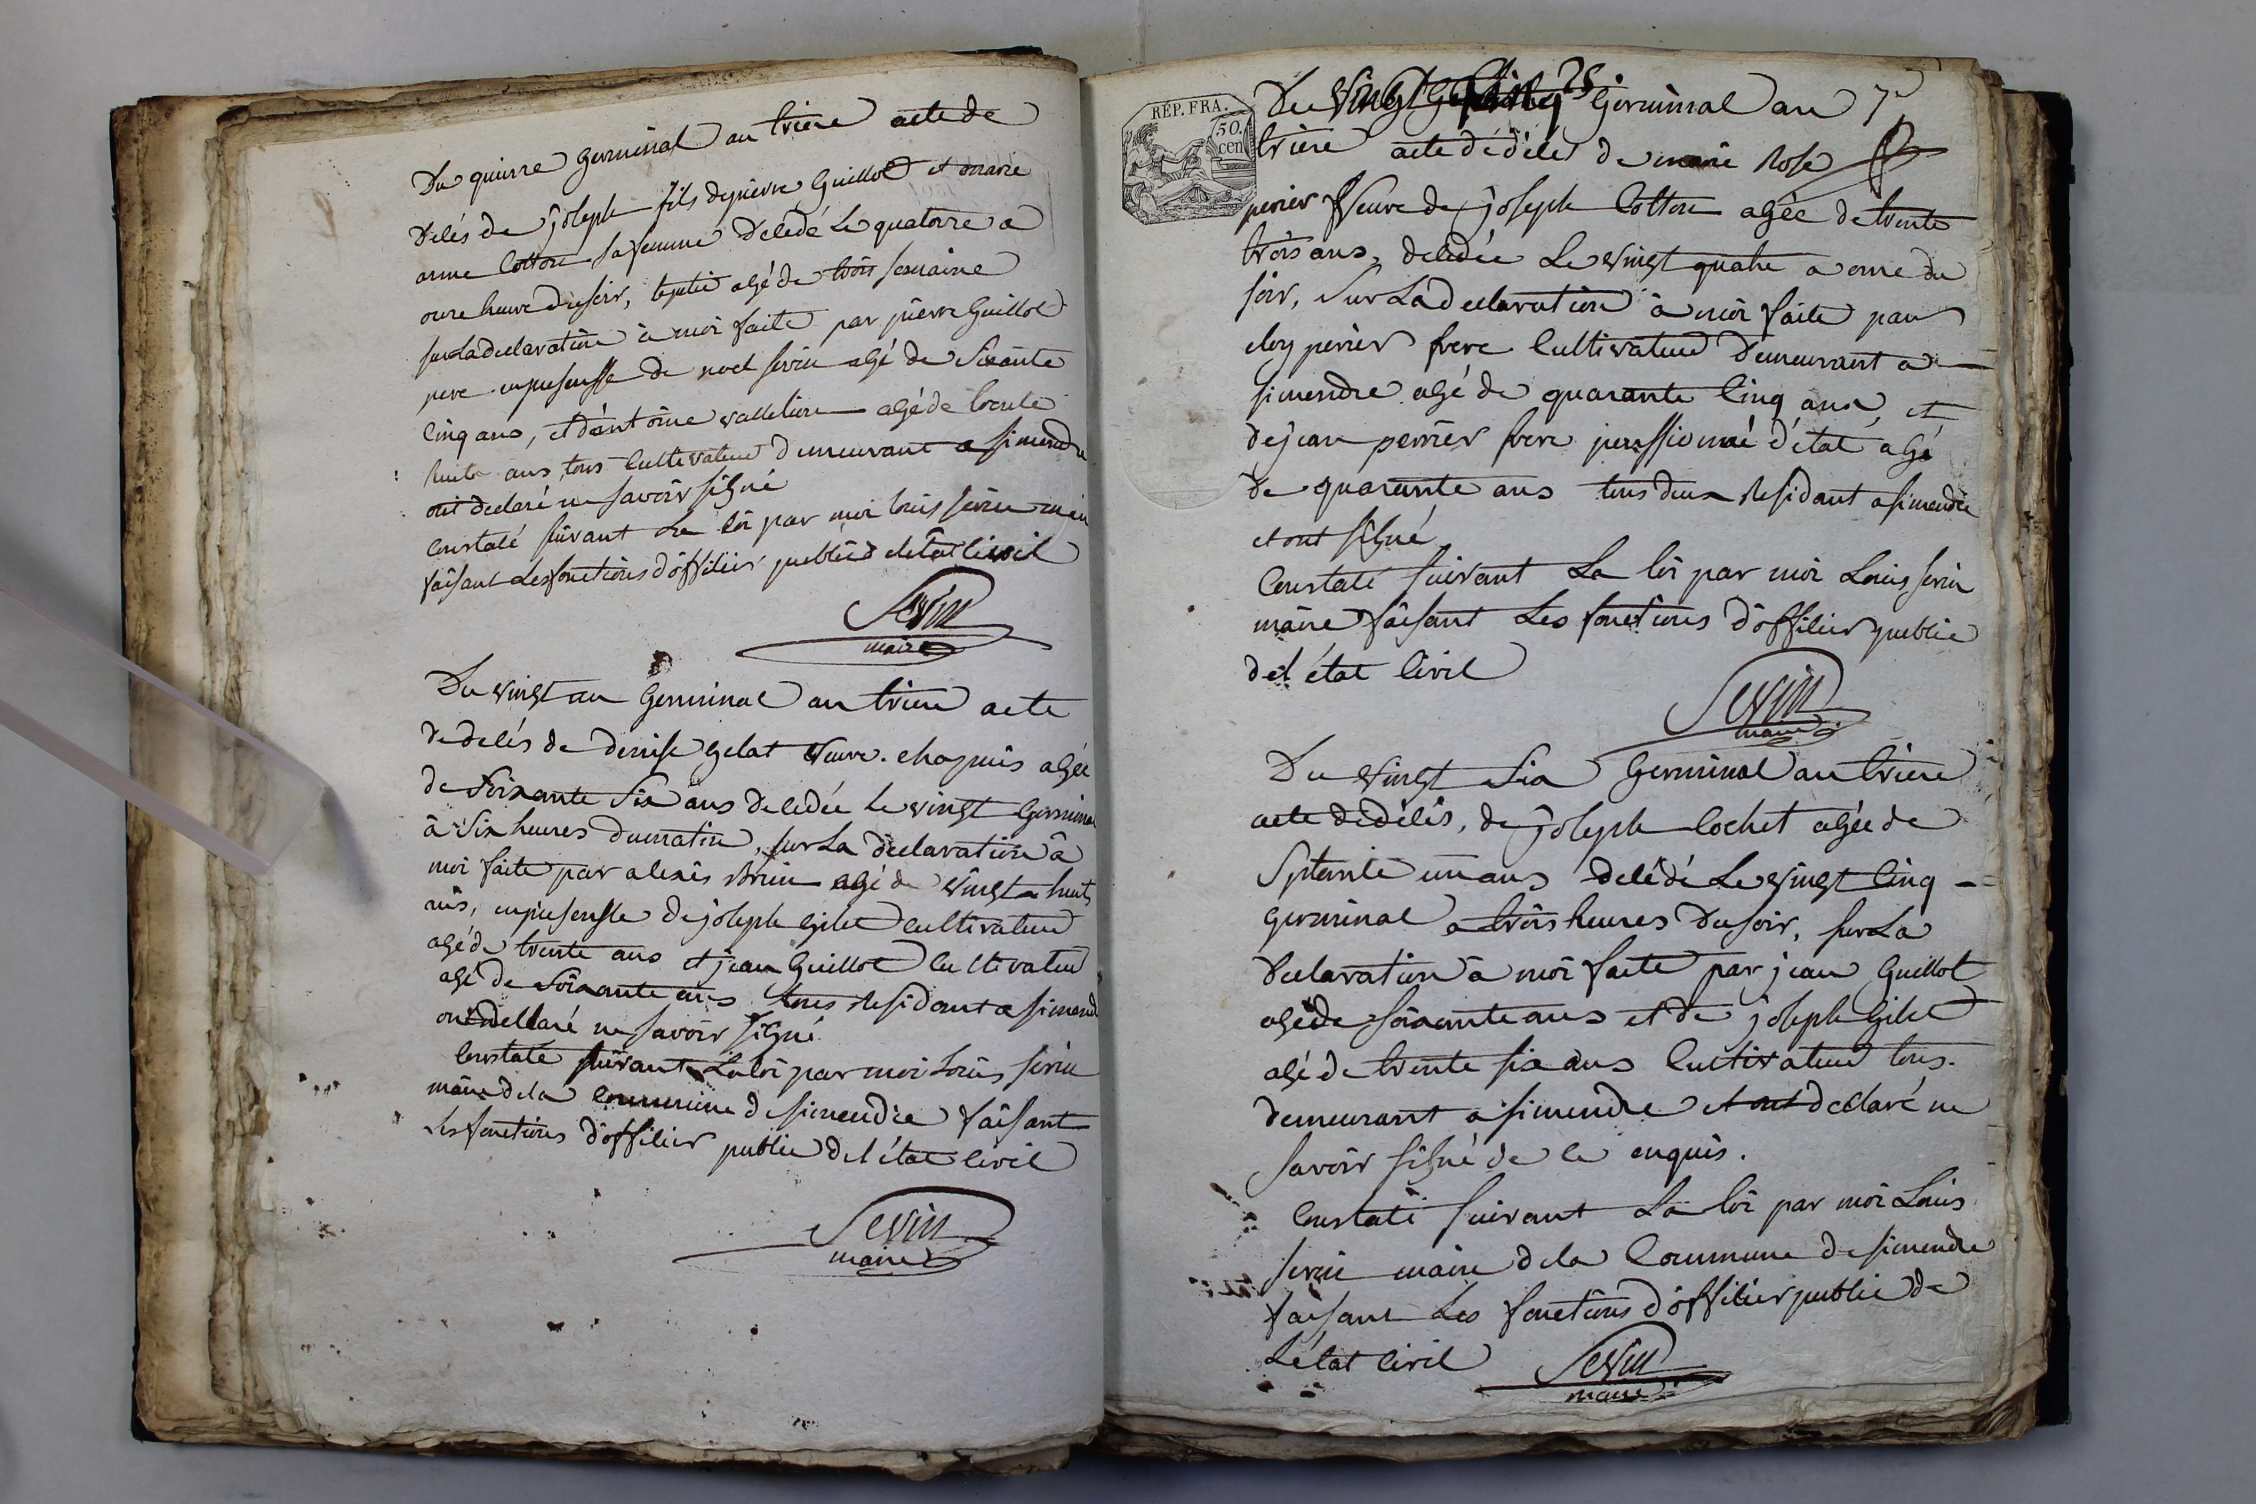 Du quinze Germinal an treize acte de
décés de joseph fils de pierre Guillot et marie
anne Cotton sa femme décédé Le quatorze a
onze heure du soir, agé de trois semaine
sur La declaration à moi faite par pierre Guillot
pere en presensse de noel sevin agé de Soixante
Cinq ans, et d'antoine vallelion agé de trente
huit ans tous Cultivateur demeurant a simendre
ont declaré ne savoir signé
Constaté suivant La loi par moi louis sevin maire
faisant Les fonctions d'officier public de l'état Civil
Sevin
maire
Du vingt un Germinal an treize acte
de décés de denise gelat veuve chapuis agée
de Soixante Six ans décédée le vingt Germinal
à Six heures du matin, sur La declaration à
moi faite par alexis agé de vingt huit
ans, en presensse de joseph Gilet Cultivateur
agé de trente ans et jean Guillot Cultivateur
agé de Soixante ans tous residant a simendre
ont declaré ne savoir signé
Constaté suivant La loi par moi Louis sevin
maire de la Commune de simendre faisant
Les fonctions d'officier public de l'état Civil
Sevin
maire
REP. FRA.
50.
cen
Du vingt Cinq 25 Germinal an 7
treize acte de décés de marie Rose
perier veuve de joseph Cotton agée de trente
trois ans, décédée Le vingt quatre a onze du
soir, sur La declaration à moi faite par
eloy perier frere Cultivateur demeurant a
simendre agé de quarante Cinq ans et
de jean perrier frere penssionné d'état agé
de quarante ans tous deux residant a simendre
et ont signé
Constaté suivant La loi par moi Louis sevin
maire faisant Les fonctions d'officier public
de l'état Civil
Sevin
maire
Du vingt Six Germinal an treize
acte de décés, de joseph Cochet agée de
Septante un ans décédé Le vingt Cinq
Germinal a trois heures du soir, sur La
declaration à moi faite par jean Guillot
agé de soixante ans et de joseph Gilet
agé de trente six ans Cultivateur tous
demeurant a simendre et ont declaré ne
savoir signé de ce enquis.
Constaté suivant La loi par moi Louis
sevin maire de la Commune de simendre
faisant Les fonctions d'officier public de
L'état Civil
Sevin
maire